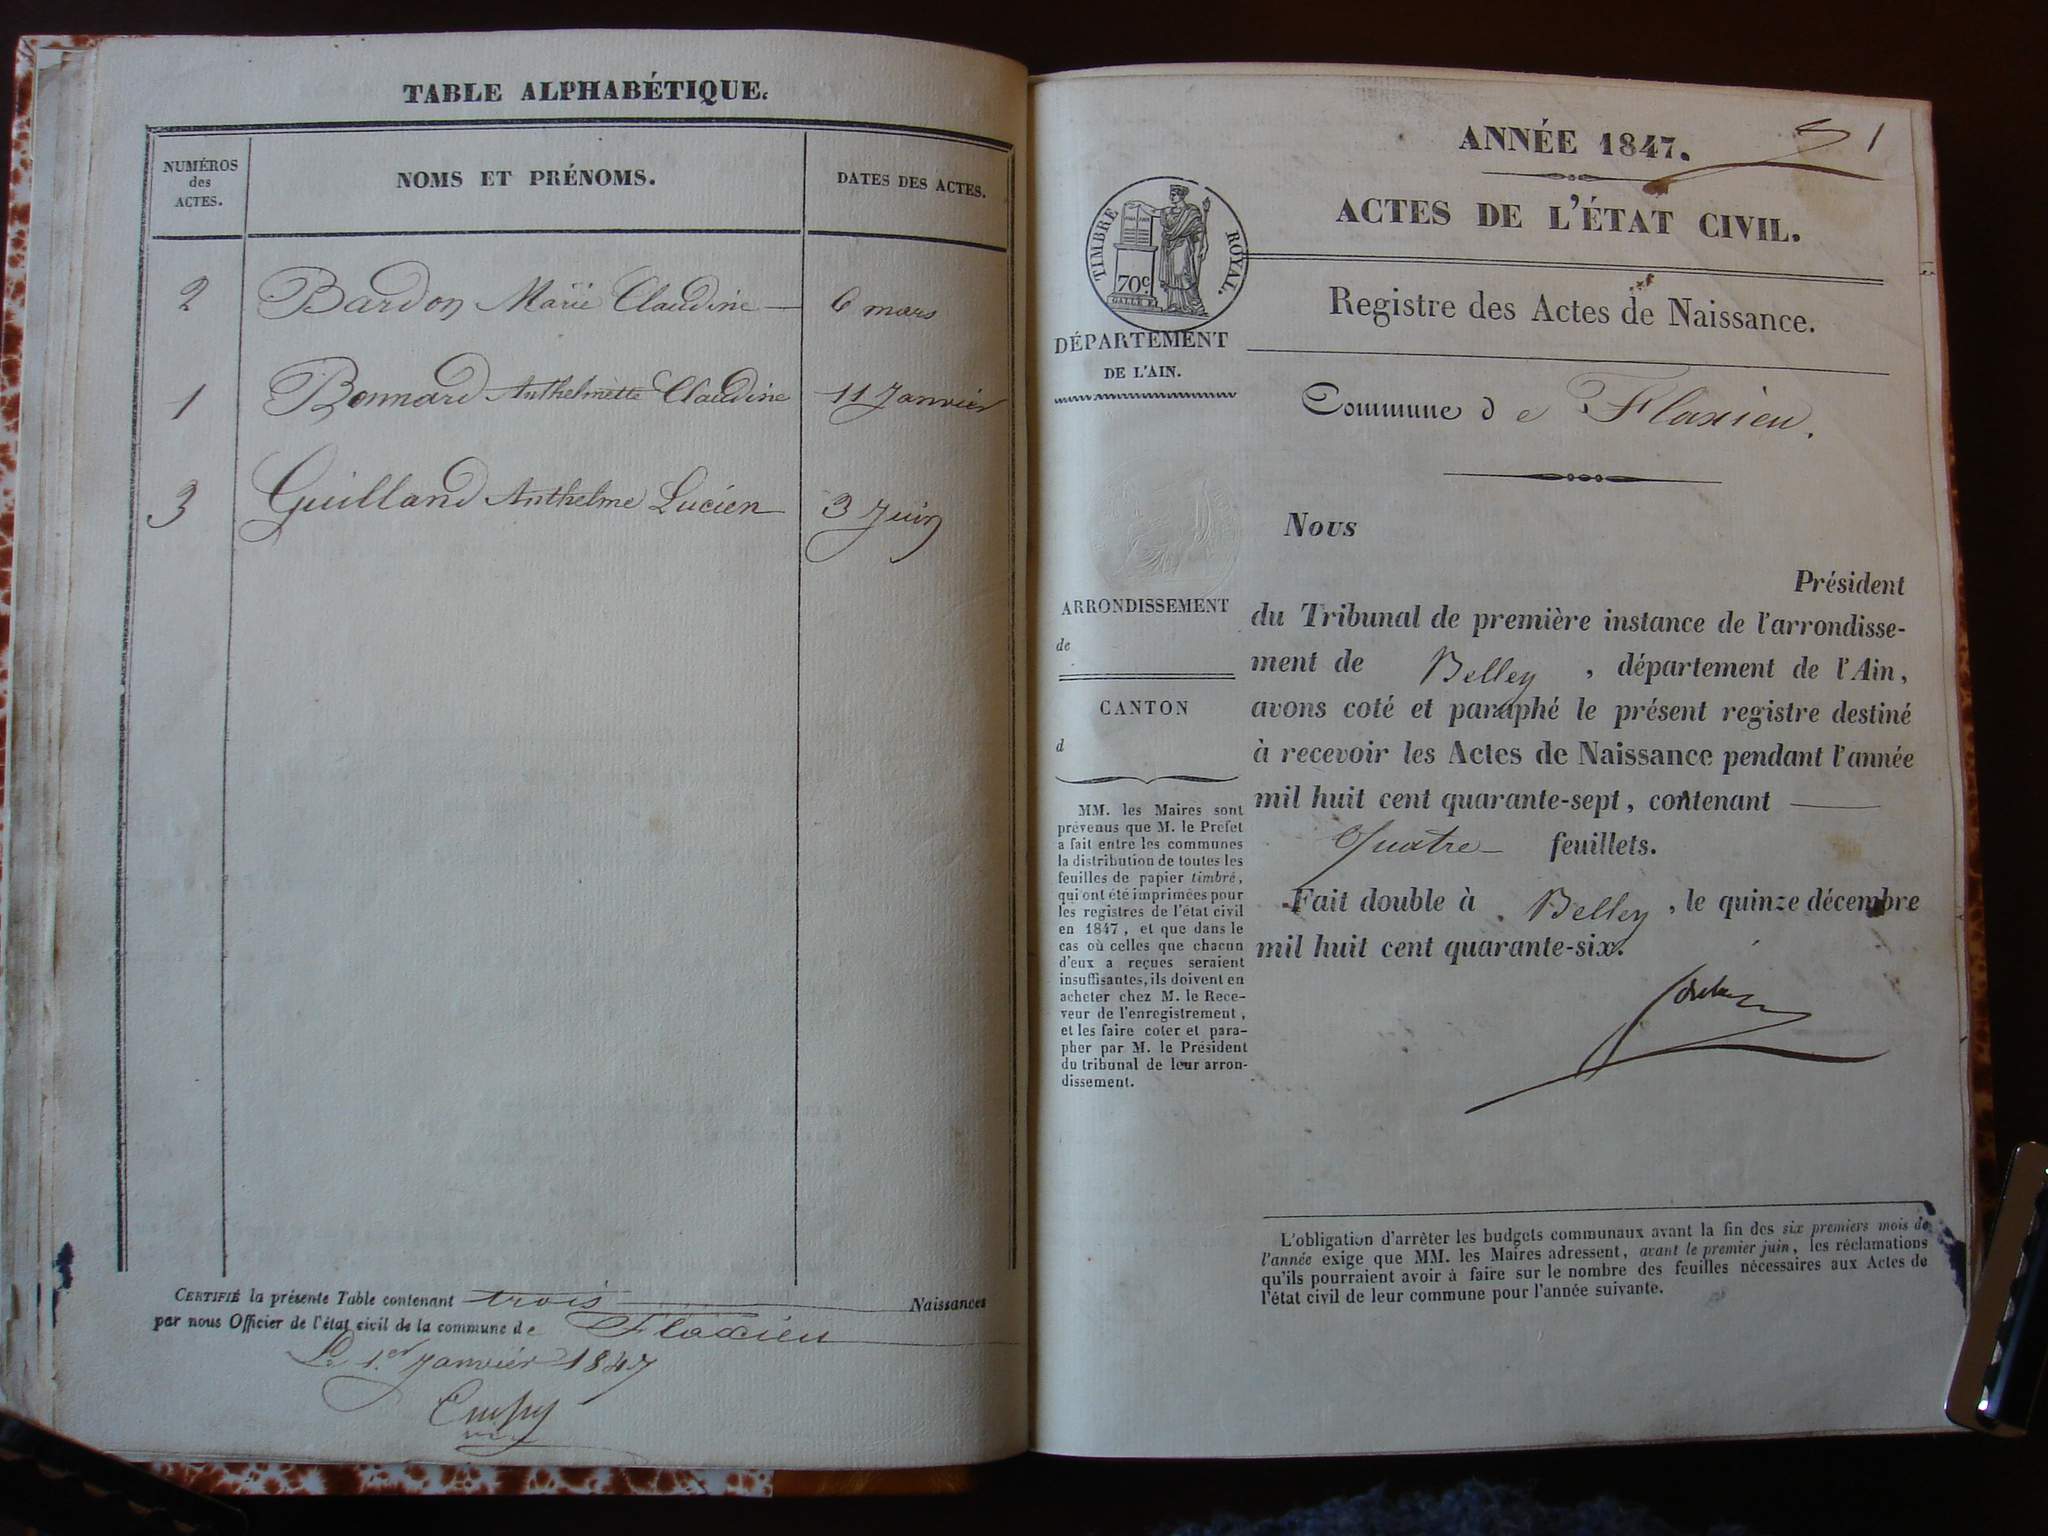 TABLE ALPHABÉTIQUE.
NUMÉROS
des
ACTES.
NOMS ET PRÉNOMS.
DATES DES ACTES.
2 Bardon Marie Claudine 6 mars
1 Bonnard Anthelmette Claudine 11 Janvier
3 Guilland Anthelme Lucien 3 Juin
CERTIFIÉ la présente Table contenant trois Naissances
par nous Officier de l'état civil de la commune de Flaxieu
Le 1.er Janvier 1847
ANNÉE 1847.
1
ACTES DE L'ÉTAT CIVIL.
TIMBRE ROYAL.
70c.
Registre des Actes de Naissance.
DÉPARTEMENT
DE L'AIN.
Commune de Flaxieu.
Nous
Président
du Tribunal de première instance de l'arrondisse-
ment de Belley, département de l'Ain,
avons coté et paraphé le présent registre destiné
à recevoir les Actes de Naissance pendant l'année
mil huit cent quarante-sept, contenant
Quatre feuillets.
Fait double à Belley, le quinze décembre
mil huit cent quarante-six.
ARRONDISSEMENT
de
CANTON
d
MM. les Maires sont
prévenus que M. le Prefet
a fait entre les communes
la distribution de toutes les
feuilles de papier timbré,
qui ont été imprimées pour
les registres de l'état civil
en 1847, et que dans le
cas où celles que chacun
d'eux a reçues seraient
insuffisantes, ils doivent en
acheter chez M. le Rece-
veur de l'enregistrement,
et les faire coter et para-
pher par M. le Président
du tribunal de leur arron-
dissement.
L'obligation d'arrêter les budgets communaux avant la fin des six premiers mois de
l'année exige que MM. les Maires adressent, avant le premier juin, les réclamations
qu'ils pourraient avoir à faire sur le nombre des feuilles nécessaires aux Actes de
l'état civil de leur commune pour l'année suivante.